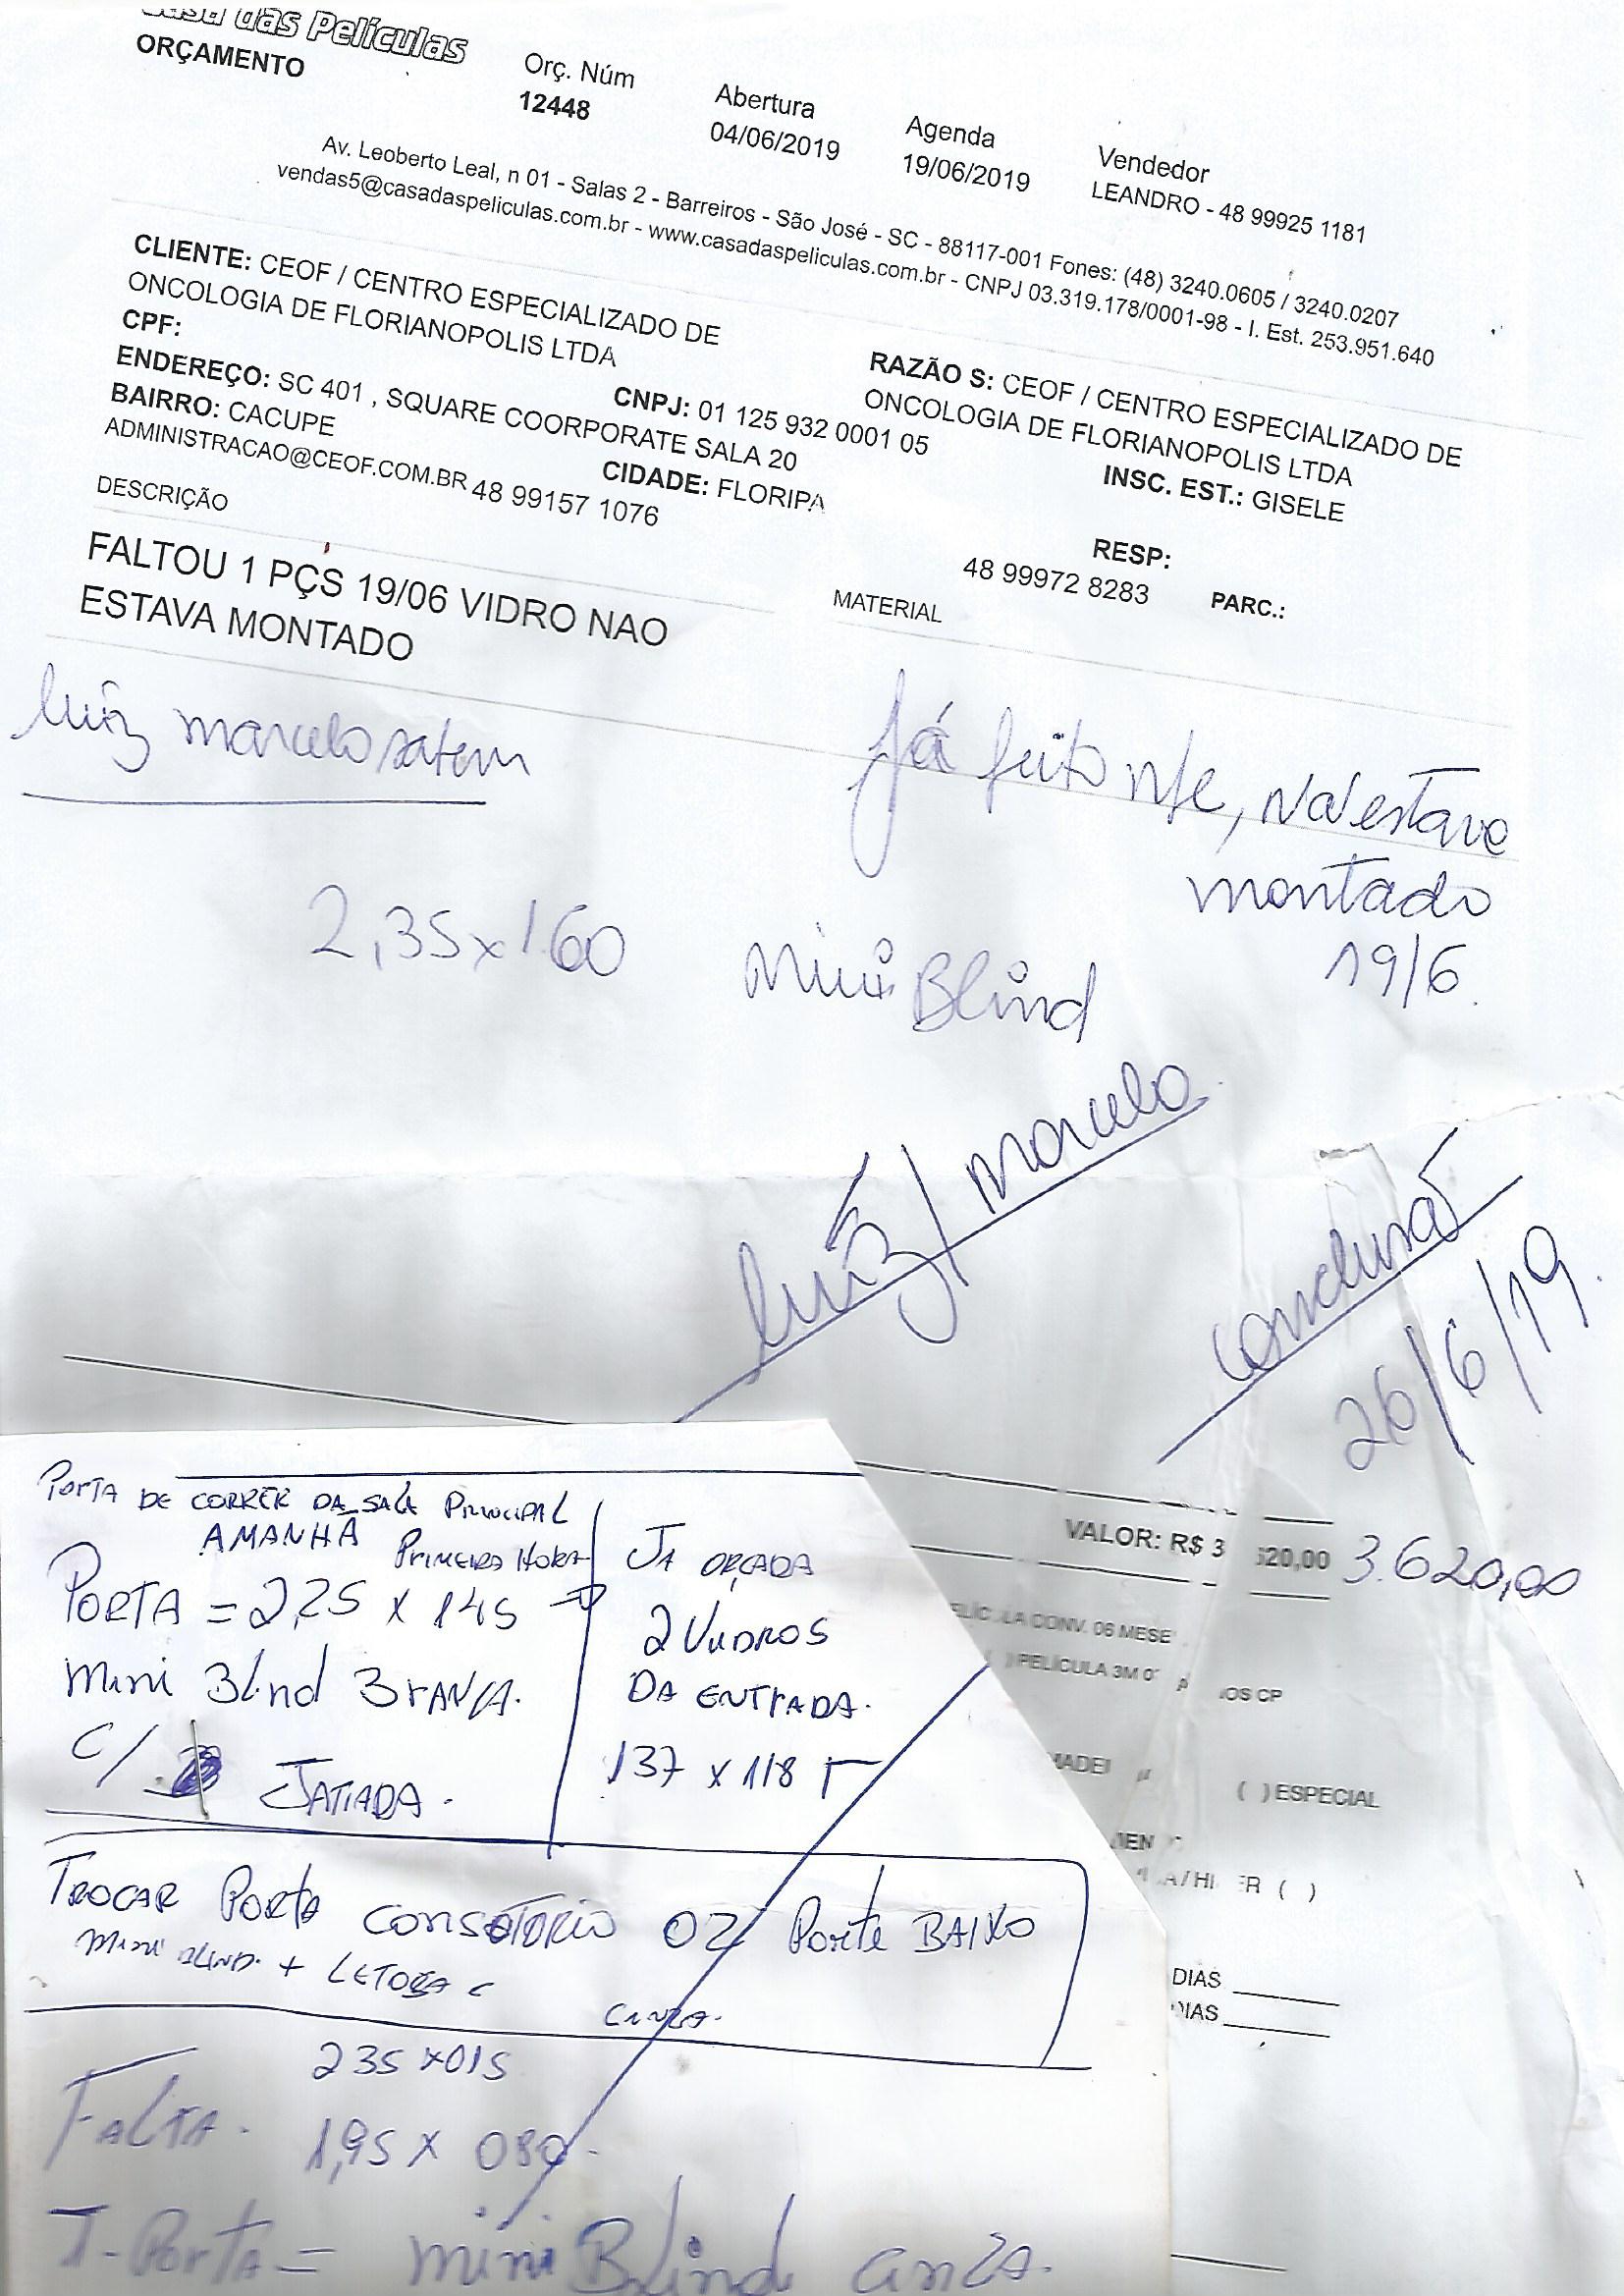 Casa das Películas
ORÇAMENTO
Orç. Núm
12448
Abertura
04/06/2019
Agenda
19/06/2019
Vendedor
LEANDRO - 48 99925 1181
Av. Leoberto Leal, n 01 - Salas 2 - Barreiros - São José - SC - 88117-001 Fones: (48) 3240.0605 / 3240.0207
vendas5@casadaspeliculas.com.br - www.casadaspeliculas.com.br - CNPJ 03.319.178/0001-98 - I. Est. 253.951.640
CLIENTE: CEOF / CENTRO ESPECIALIZADO DE
ONCOLOGIA DE FLORIANOPOLIS LTDA
CPF:
CNPJ: 01 125 932 0001 05
RAZÃO S: CEOF / CENTRO ESPECIALIZADO DE
ONCOLOGIA DE FLORIANOPOLIS LTDA
INSC. EST.: GISELE
ENDEREÇO: SC 401 , SQUARE COORPORATE SALA 20
BAIRRO: CACUPE
CIDADE: FLORIPA
ADMINISTRACAO@CEOF.COM.BR 48 99157 1076
RESP:
48 99972 8283
PARC.:
DESCRIÇÃO
MATERIAL
FALTOU 1 PÇS 19/06 VIDRO NAO
ESTAVA MONTADO
luiz marcelo
Já feito nfe, não estava
montado
19/6.
2,35x1.60
Mini Blind
luiz/marcelo
conclusão
26/6/19.
VALOR: R$ 3 620,00 3.620,00
LA CONV. 06 MESE
( ) PELÍCULA 3M
OS CP
( ) ESPECIAL
DIAS
PORTA DE CORRER DA SALA PRINCIPAL
AMANHÃ PRIMEIRA HORA
PORTA = 2,25 x 145
mini Blind BrANCA.
C/ JATIADA.
JA ORÇADA
2 VIDROS
DA ENTRADA.
137 x 118
TROCAR PORTA 02 Porte BAIXO
mini BLIND. +
CINZA.
235 x 015
FALTA. 1,95 x 080.
1-Porta = mini Blind cinza.